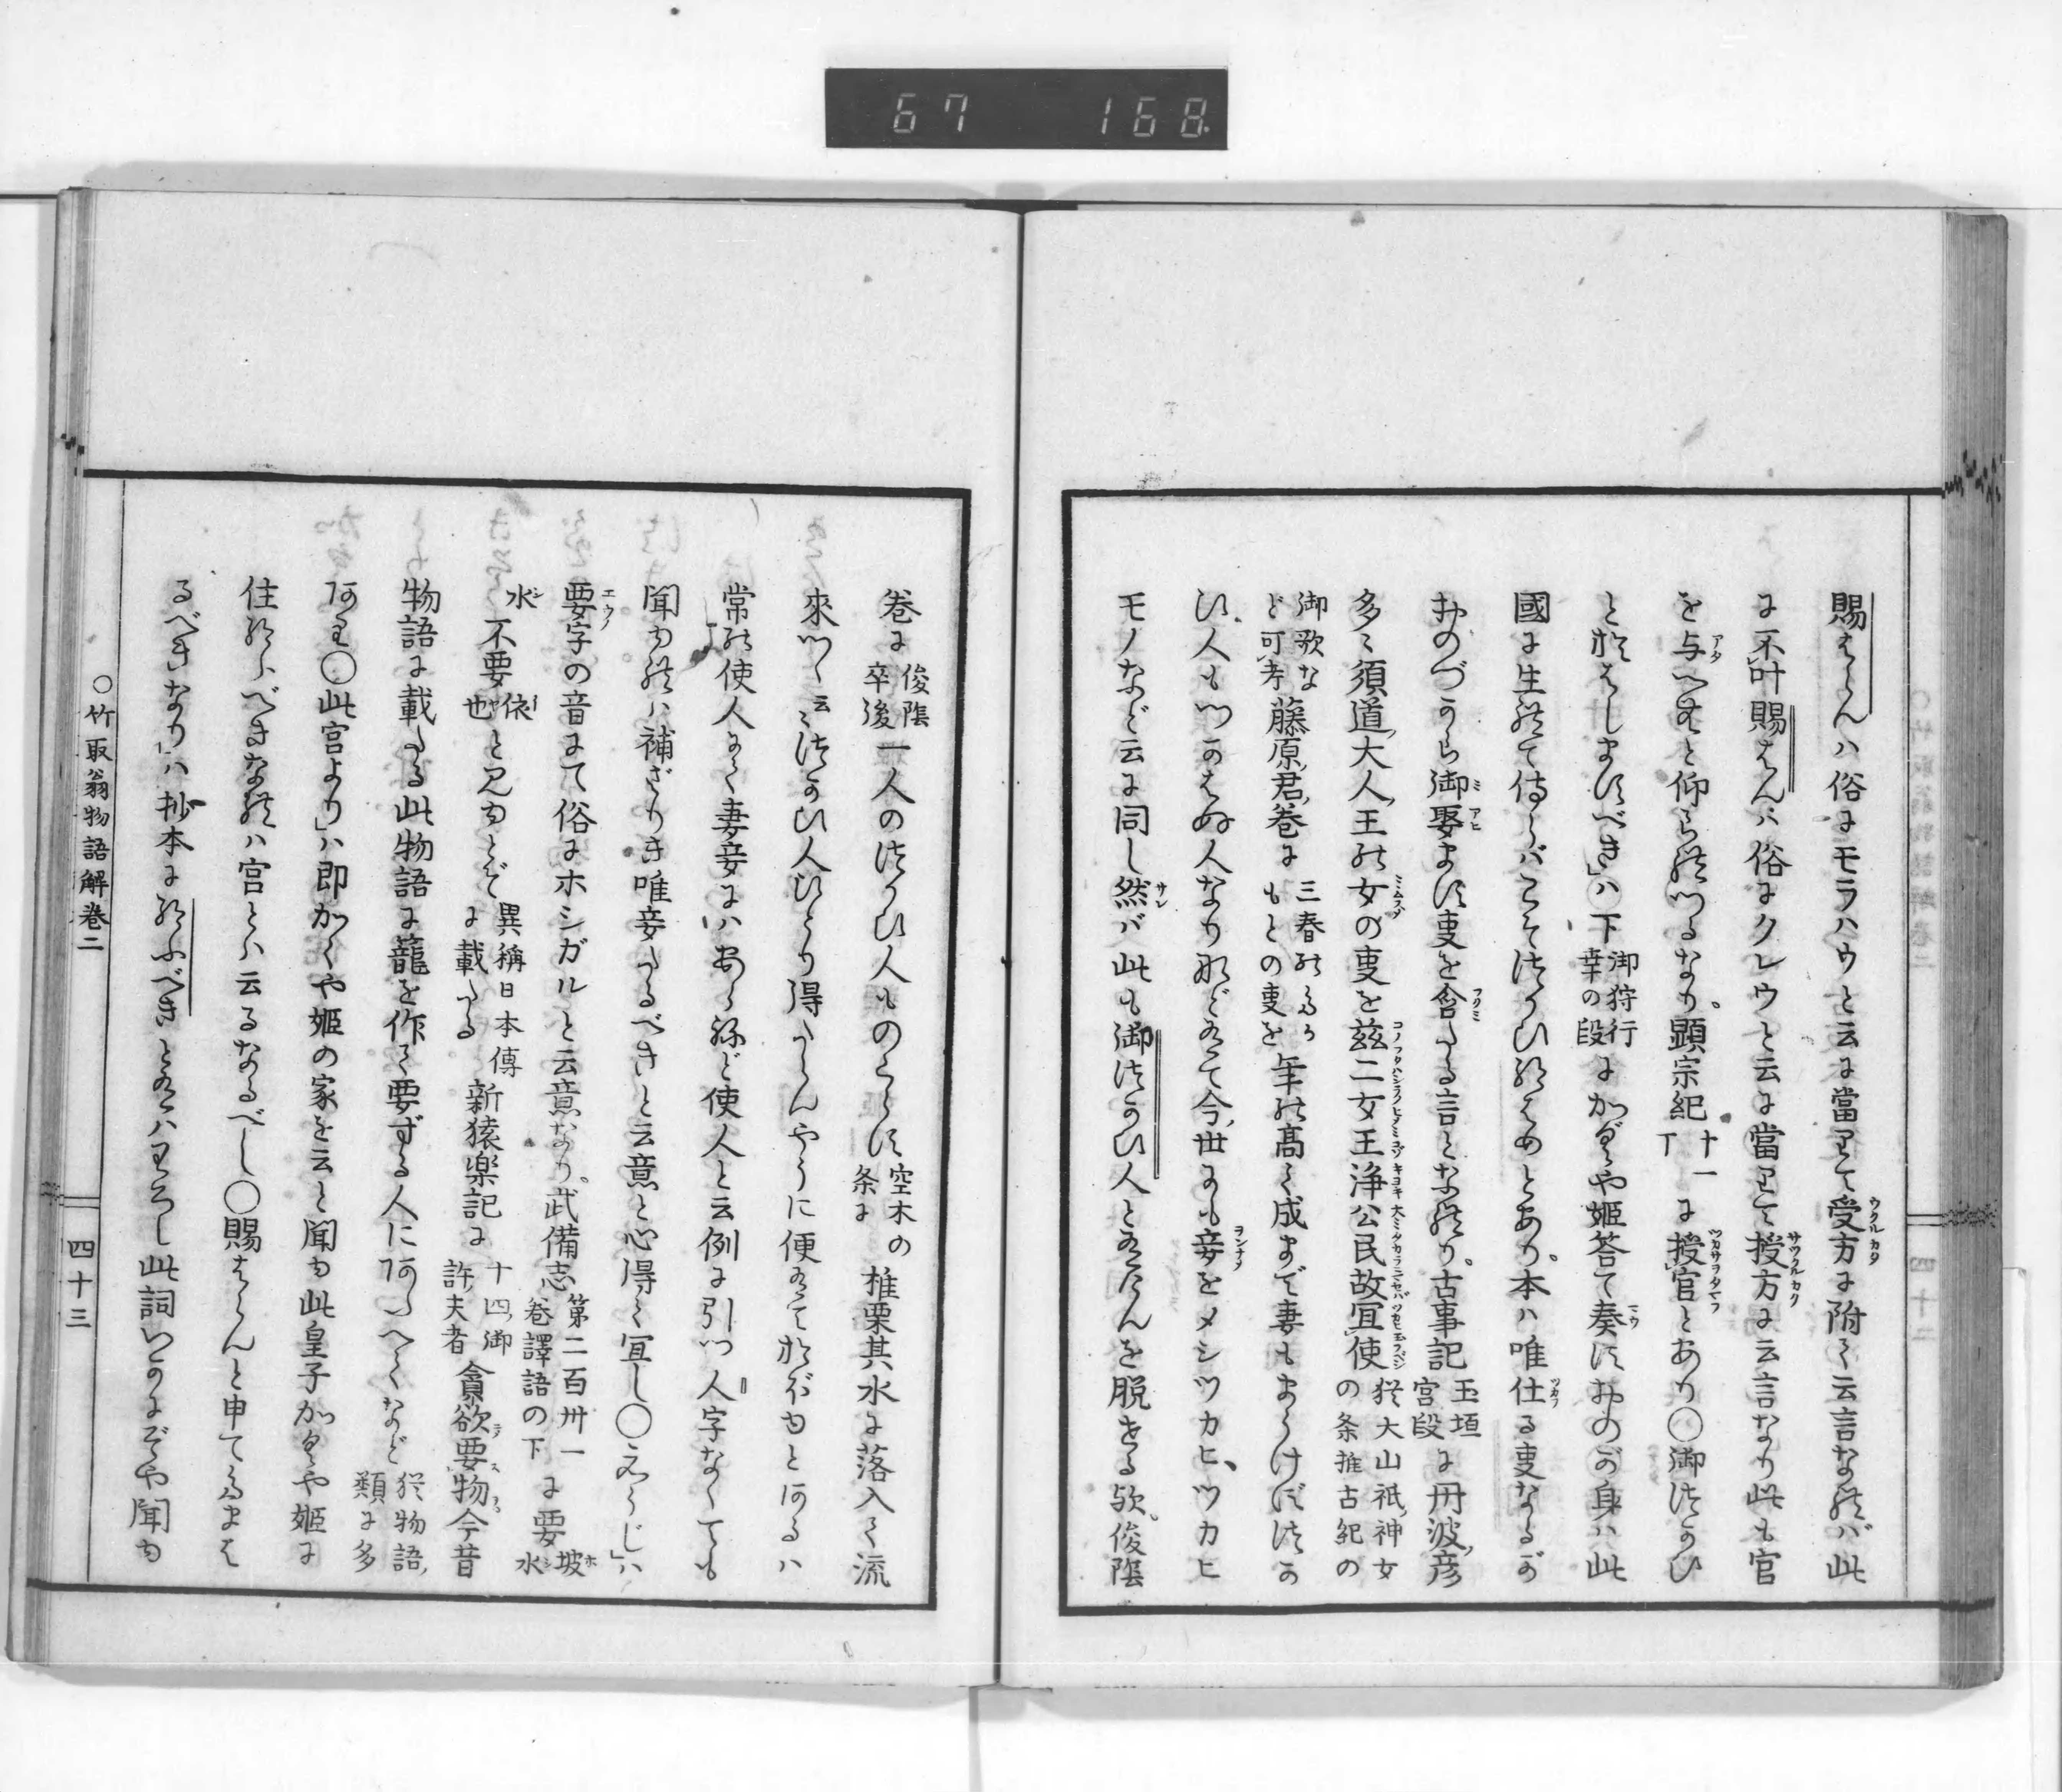 67 168
賜はらんハ俗にモラハウと云に當りて受方に附て云言なれバ此
に不叶賜はんハ俗にクレウと云に當りて授方に云言なり此も官
を与へんと仰られつるなり。顕宗紀十一丁に授官とあり〇御つかひ
とおはしますべき」ハ〇下御狩行幸の段にかぐや姫答て奏すおのが身ハ此
國に生れて侍らバこそつかひ給はめとあり。本ハ唯仕る事なるが
おのづから御娶ます事を含たる言となれり。古事記玉垣宮段に丹波彦
多々須道大人王の女の事を茲二女王浄公民故宜使猶大山祇神女の条推古紀の
御歌など可考藤原君巻に三春のたかもとの事を年の高く成まで妻もまうけずつか
ひ人もつかはぬ人なり云々今世にも妾をメシツカヒ、ツカヒ
モノなど云に同し然バ此も御つかひ人とありけんを脱せる歟。俊蔭
巻に俊蔭卒後一人のつかひ人ものこらず空木の条に椎栗其水に落入て流
來つゝ云々つかひ人ひとり得たらんやうに便ありておぼゆとあるハ
常の使人にて妻妾にハあらねど使人と云例に引つ人字なくても
聞ゆれハ補ざりき唯妾たるべきと云意と心得て宜し〇えうじ」ハ
要字の音にて俗にホシガルと云意なり。武備志第二百卅一巻譯語の下に要坡水
水不要依也と見ゆとぞ異稱日本傳に載たる新猿楽記に十四御許夫者貪欲要物今昔
物語に載たる此物語に籠を作て要ずる人にあたへてなど猶物語類に多
あり〇此宮より」ハ即かくや姫の家を云と聞ゆ此皇子かくや姫に
住給ふべきなれハ宮とハ云るなるべし〇賜はらんと申てたまは
るべきなり」ハ抄本に給ふべきとあるハわろし此詞いかにぞや聞ゆ
〇竹取翁物語解巻二
四十三